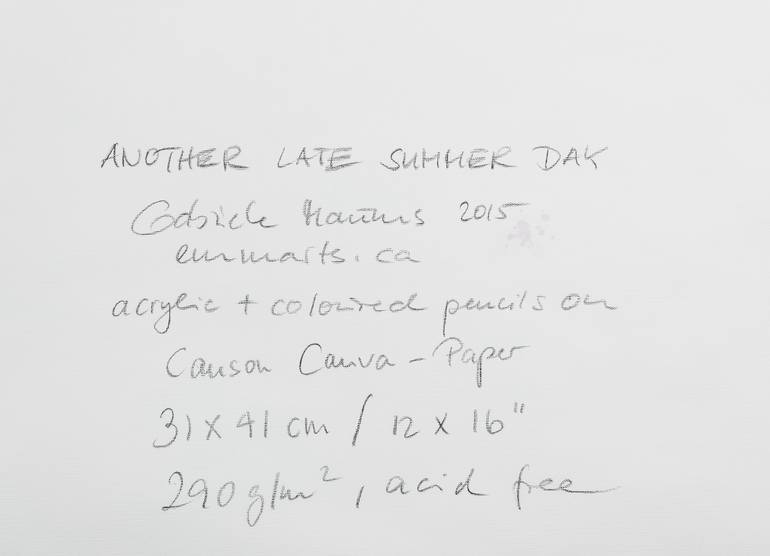 ANOTHER LATE SUMMER DAY
Gabriele 2015
emmarts.ca
acrylic + coloured pencils on
Canson Canva-Paper
31 x 41 cm / 12 x 16"
290 g/m², acid free